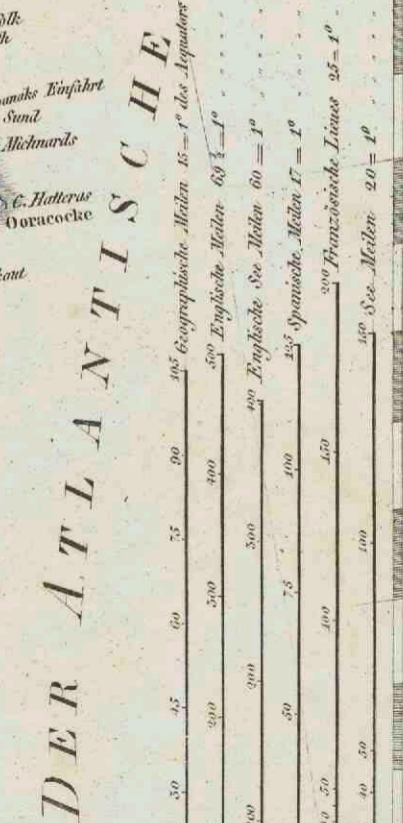 Einfahrt
Sund
C. Hatteras
Ooracocke
DER ATLANTISCHE
30 45 60 75 90 105 Geographische Meilen 15 = 1° des Aequators
200 300 400 500 Englische Meilen 69 ½ = 1°
200 300 400 Englische See Meilen 60 = 1°
50 75 100 125 Spanische Meilen 17 = 1°
50 100 150 200 Französische Lieues 25 = 1°
40 50 100 150 See Meilen 20 = 1°